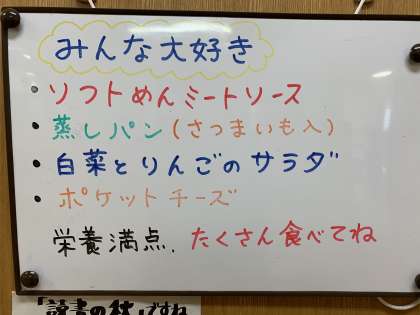 みんな大好き
・ソフトめんミートソース
・蒸しパン(さつまいも入)
・白菜とりんごのサラダ
・ポケットチーズ
栄養満点、たくさん食べてね
「読書の秋」ですね